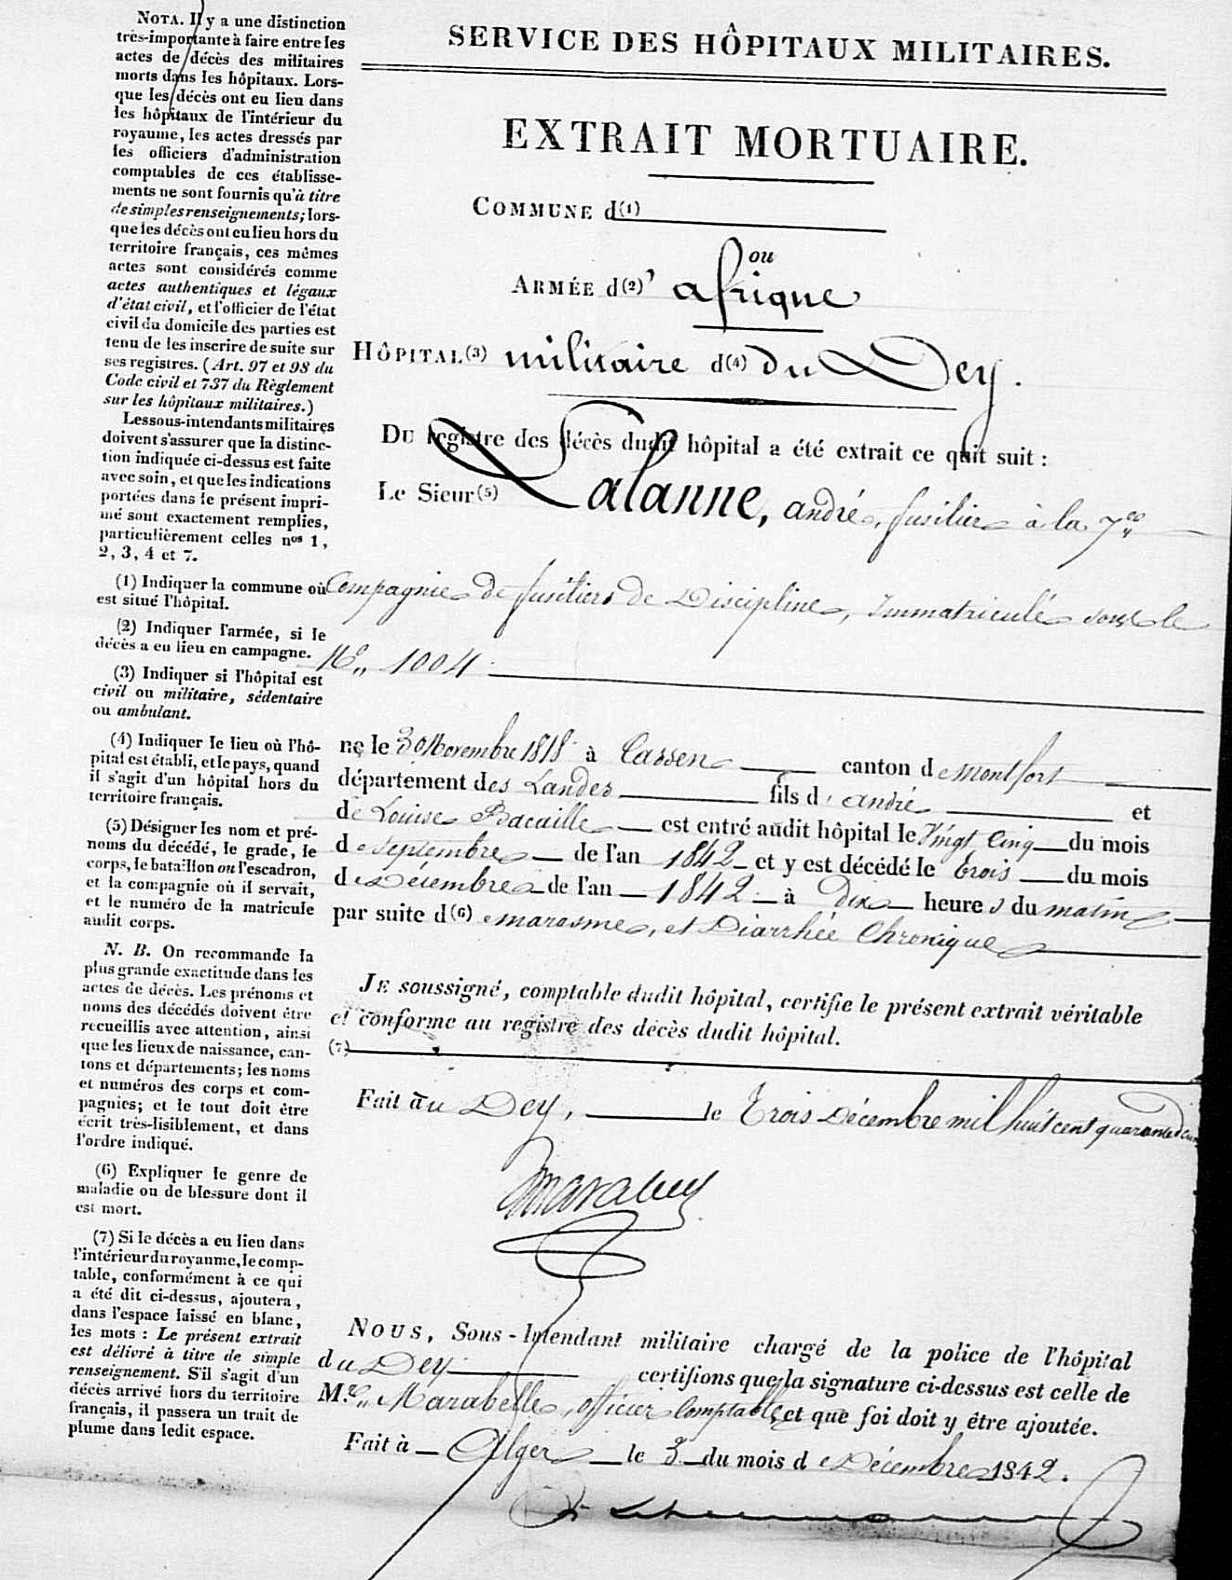 NOTA. Il y a une distinction
très-importante à faire entre les
actes de décès des militaires
morts dans les hôpitaux. Lors-
que les décès ont eu lieu dans
les hôpitaux de l'intérieur du
royaume, les actes dressés par
les officiers d'administration
comptables de ces établisse-
ments ne sont fournis qu'à titre
de simples renseignements; lors-
que les décès ont eu lieu hors du
territoire français, ces mêmes
actes sont considérés comme
actes authentiques et légaux
d'état civil, et l'officier de l'état
civil du domicile des parties est
tenu de les inscrire de suite sur
ses registres. (Art. 97 et 98 du
Code civil et 737 du Règlement
sur les hôpitaux militaires.)
Les sous-intendants militaires
doivent s'assurer que la distinc-
tion indiquée ci-dessus est faite
avec soin, et que les indications
portées dans le présent impri-
mé sont exactement remplies,
particulièrement celles nos 1,
2, 3, 4 et 7.
(1) Indiquer la commune où
est situé l'hôpital.
(2) Indiquer l'armée, si le
décès a eu lieu en campagne.
(3) Indiquer si l'hôpital est
civil ou militaire, sédentaire
ou ambulant.
(4) Indiquer le lieu où l'hô-
pital est établi, et le pays, quand
il s'agit d'un hôpital hors du
territoire français.
(5) Désigner les nom et pré-
noms du décédé, le grade, le
corps, le bataillon ou l'escadron,
et la compagnie où il servait,
et le numéro de la matricule
audit corps.
N. B. On recommande la
plus grande exactitude dans les
actes de décès. Les prénoms et
noms des décédés doivent être
recueillis avec attention, ainsi
que les lieux de naissance, can-
tons et départements; les noms
et numéros des corps et com-
pagnies; et le tout doit être
écrit très-lisiblement, et dans
l'ordre indiqué.
(6) Expliquer le genre de
maladie ou de blessure dont il
est mort.
(7) Si le décès a eu lieu dans
l'intérieur du royaume, le comp-
table, conformément à ce qui
a été dit ci-dessus, ajoutera,
dans l'espace laissé en blanc,
les mots : Le présent extrait
est délivré à titre de simple
renseignement. S'il s'agit d'un
décès arrivé hors du territoire
français, il passera un trait de
plume dans ledit espace.
SERVICE DES HÔPITAUX MILITAIRES.
EXTRAIT MORTUAIRE.
COMMUNE d(1)
ou
ARMÉE d(2)' afrique
HÔPITAL(3) militaire d(4) du Dey.
DU registre des décès dudit hôpital a été extrait ce qui suit :
Le Sieur(5) Lalanne, andré, fusilier à la 7.e
Compagnie de fusiliers de Discipline, Immatriculé sous le
No. 1004
né le 30 Novembre 1818 à Cassen canton de montfort
département des Landes fils d' andré et
de Louise Bacaille est entré audit hôpital le Vingt Cinq du mois
de Septembre de l'an 1842 et y est décédé le trois du mois
de Décembre de l'an 1842 à dix heures du matin
par suite d(6) e marasme, et Diarrhée Chronique
JE soussigné, comptable dudit hôpital, certifie le présent extrait véritable
et conforme au registre des décès dudit hôpital.
(7)
Fait au Dey, le trois Décembre mil huit cent quarante deux
Marabelle
NOUS, Sous-Intendant militaire chargé de la police de l'hôpital
du Dey certifions que la signature ci-dessus est celle de
M.r Marabelle, officier Comptable, et que foi doit y être ajoutée.
Fait à Alger le 3 du mois de Décembre 1842.